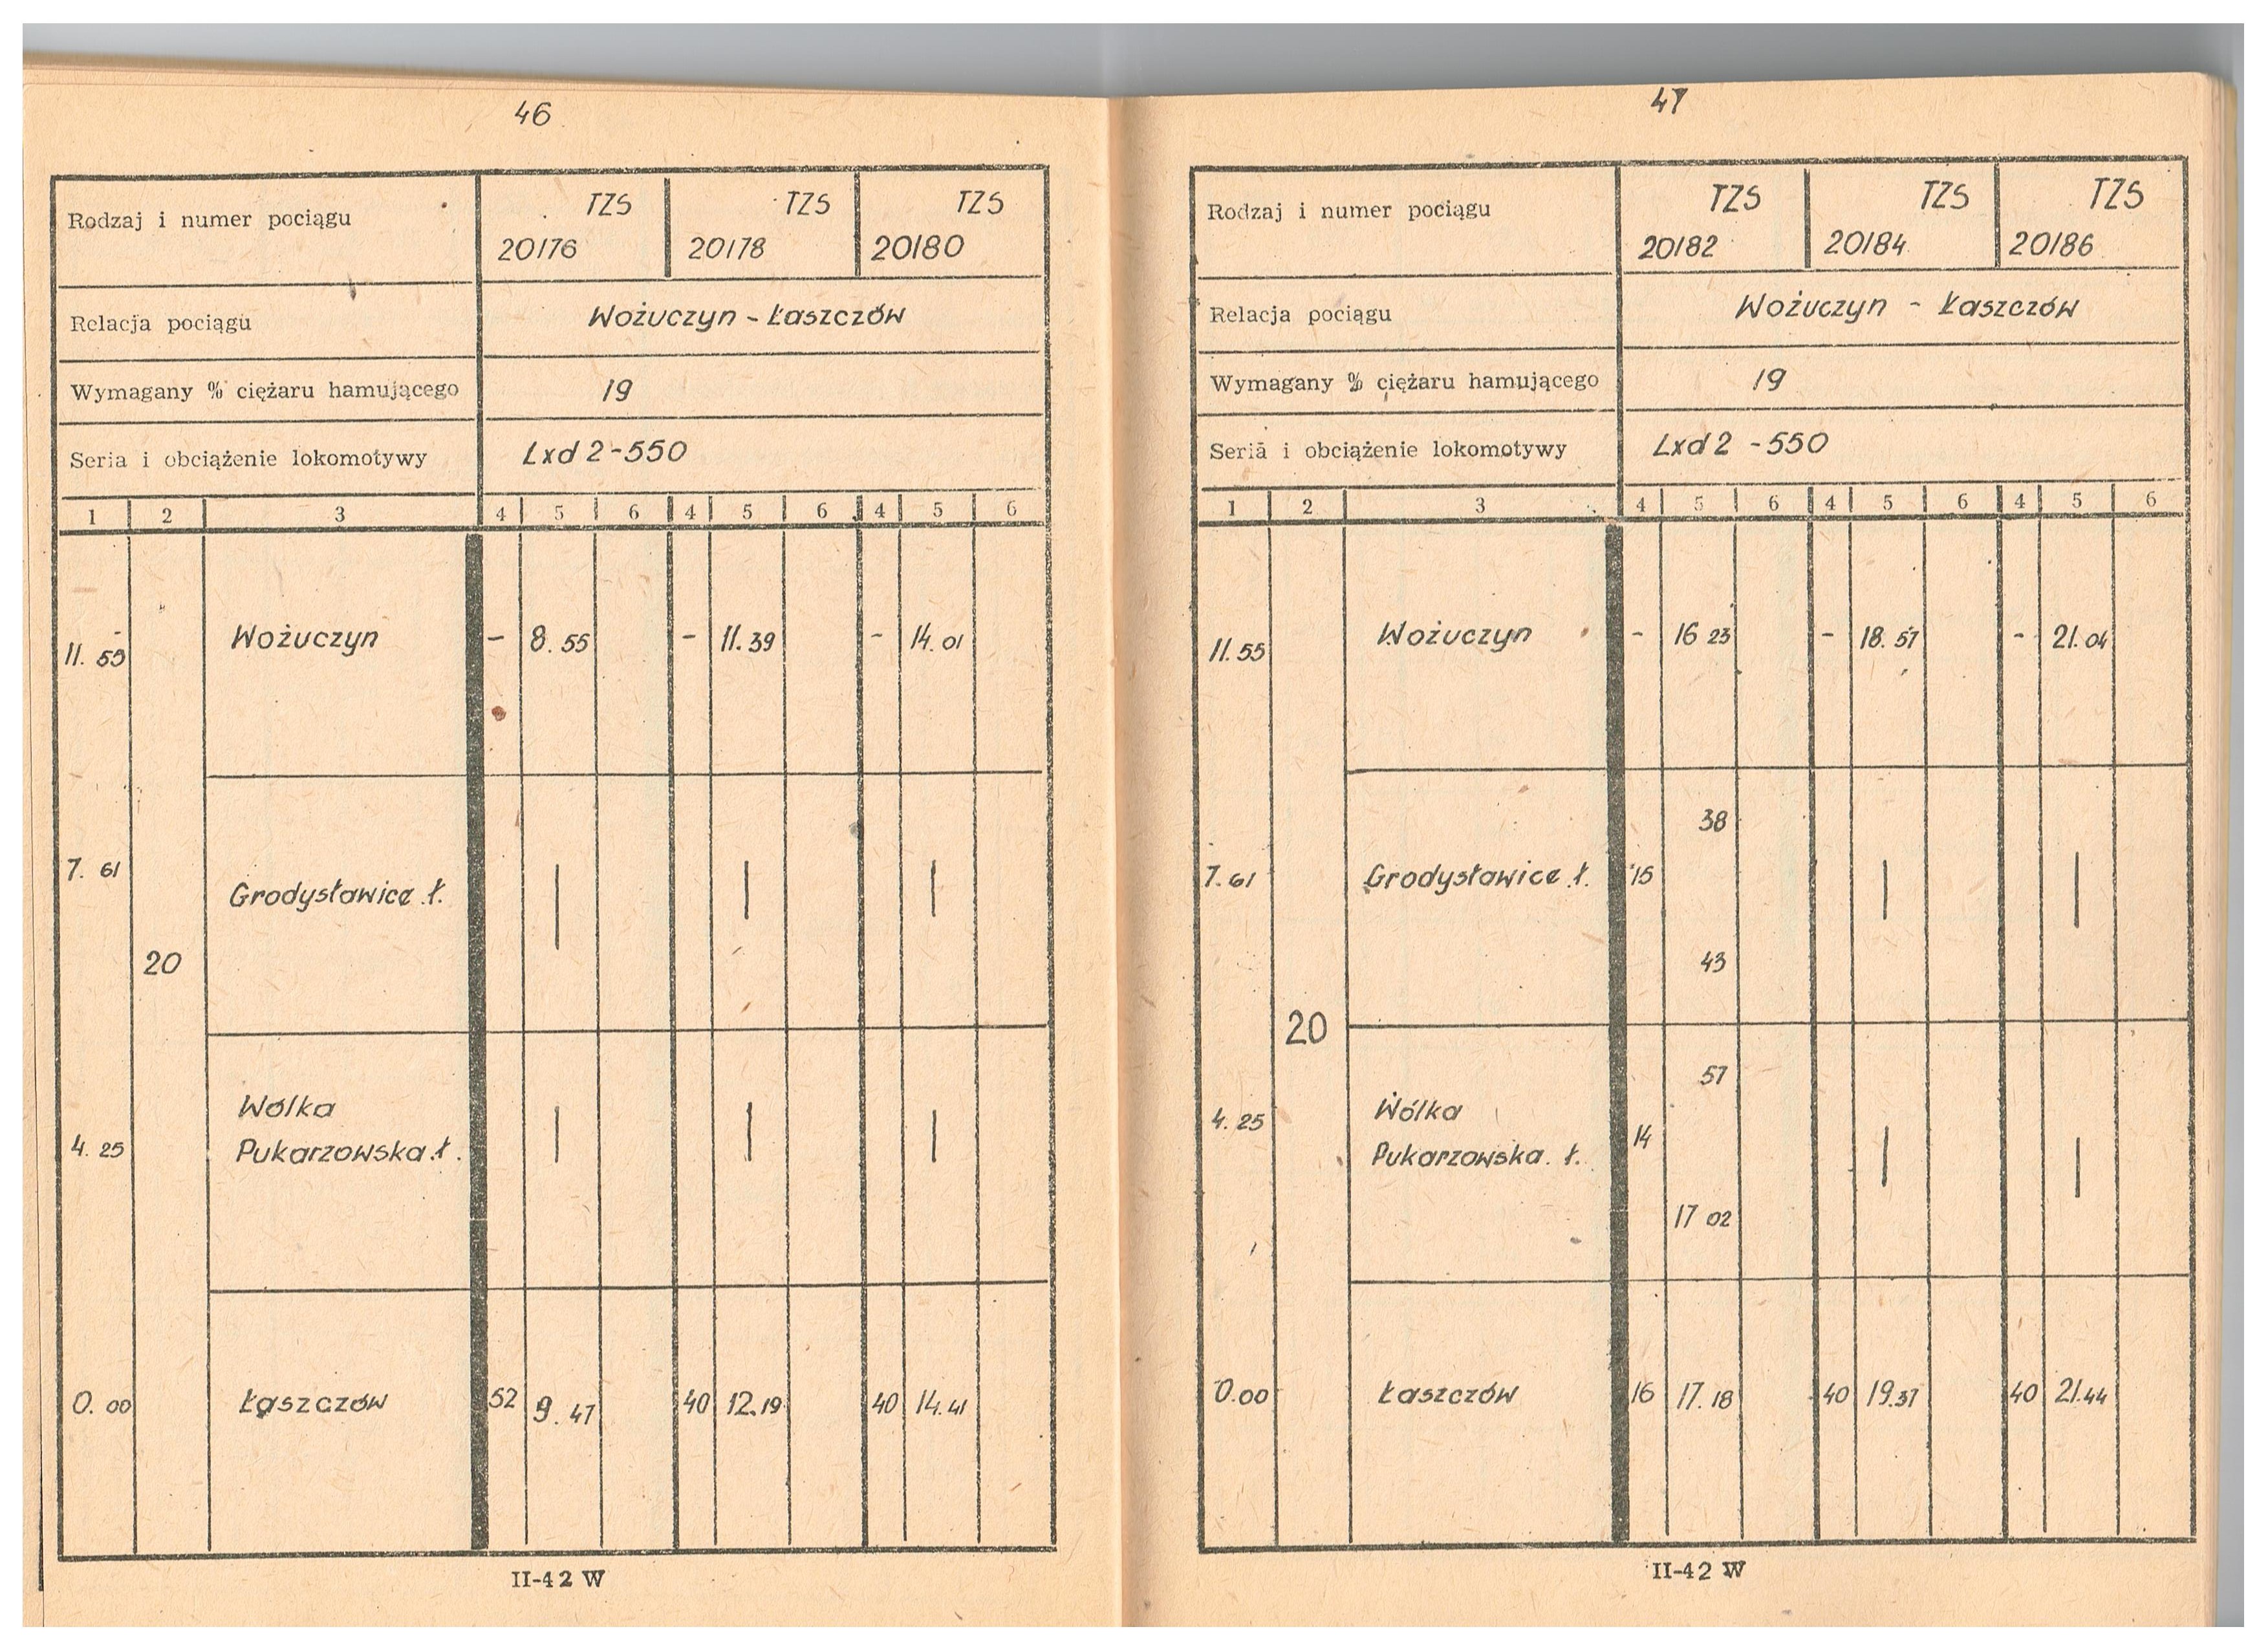 46
Rodzaj i numer pociągu TZS TZS TZS
20176 20178 20180
Relacja pociągu Wożuczyn - Łaszczów
Wymagany % ciężaru hamującego 19
Seria i obciążenie lokomotywy Lxd 2 - 550
1 2 3 4 5 6 4 5 6 4 5 6
11. 55 Wożuczyn - 8. 55 - 11. 39 - 14. 01
7. 61 Grodysławice ł. | | |
20
Wólka
4. 25 Pukarzowska ł. | | |
0. 00 Łaszczów 52 9. 47 40 12. 19 40 14. 41
II-42 W
47
Rodzaj i numer pociągu TZS TZS TZS
20182 20184 20186
Relacja pociągu Wożuczyn - Łaszczów
Wymagany % ciężaru hamującego 19
Seria i obciążenie lokomotywy Lxd 2 - 550
1 2 3 4 5 6 4 5 6 4 5 6
11. 55 Wożuczyn - 16 23 - 18. 57 - 21. 04
38
7. 61 Grodysławice ł. 15 | |
43
20
57
4. 25 Wólka
Pukarzowska. ł. 14 | |
17 02
0.00 Łaszczów 16 17. 18 40 19. 37 40 21. 44
II-42 W